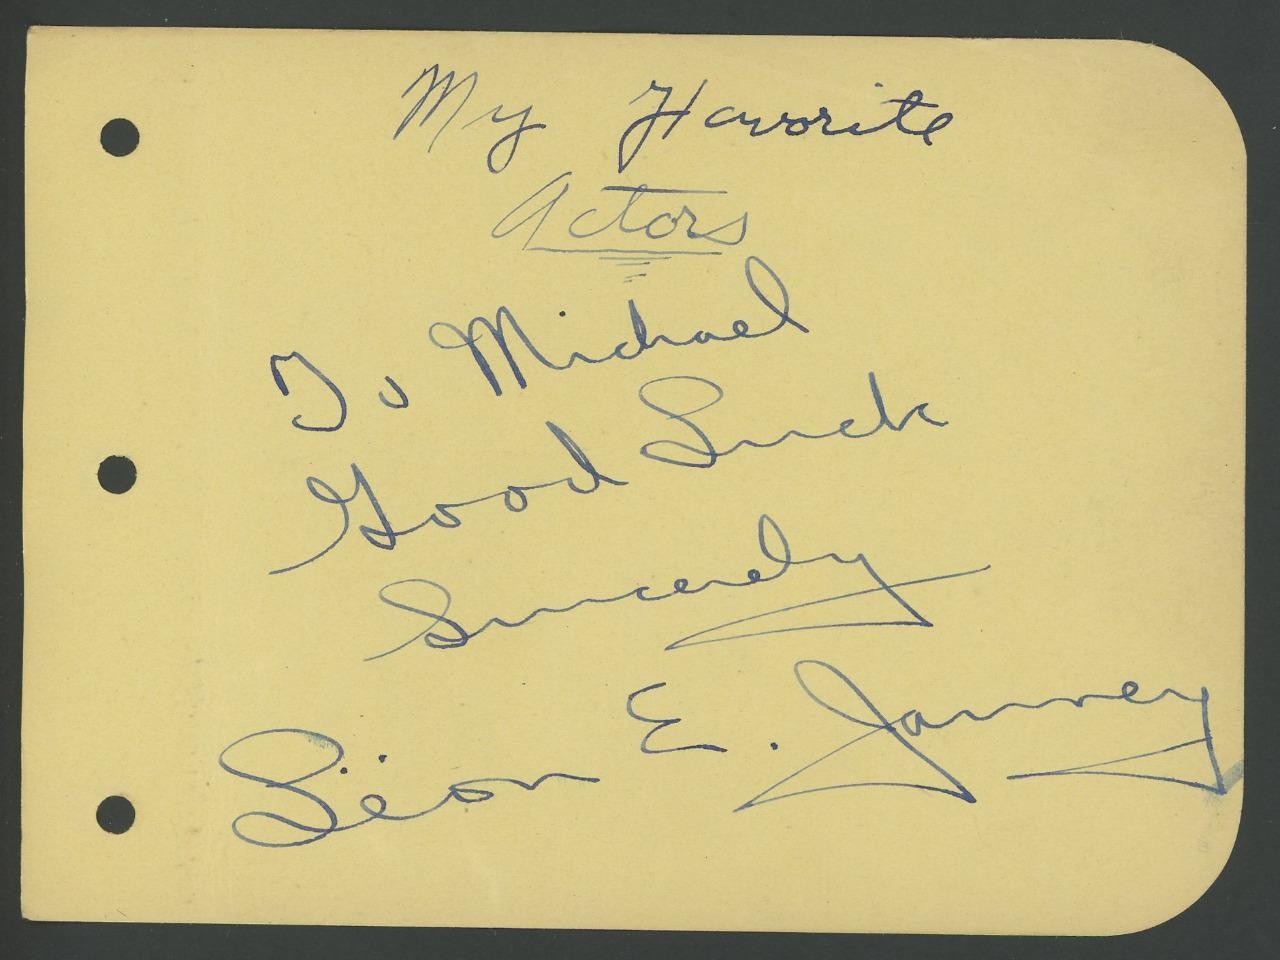 My Favorite
Actors
To Michael
Good Luck
Sincerely
Lëon E. Janney